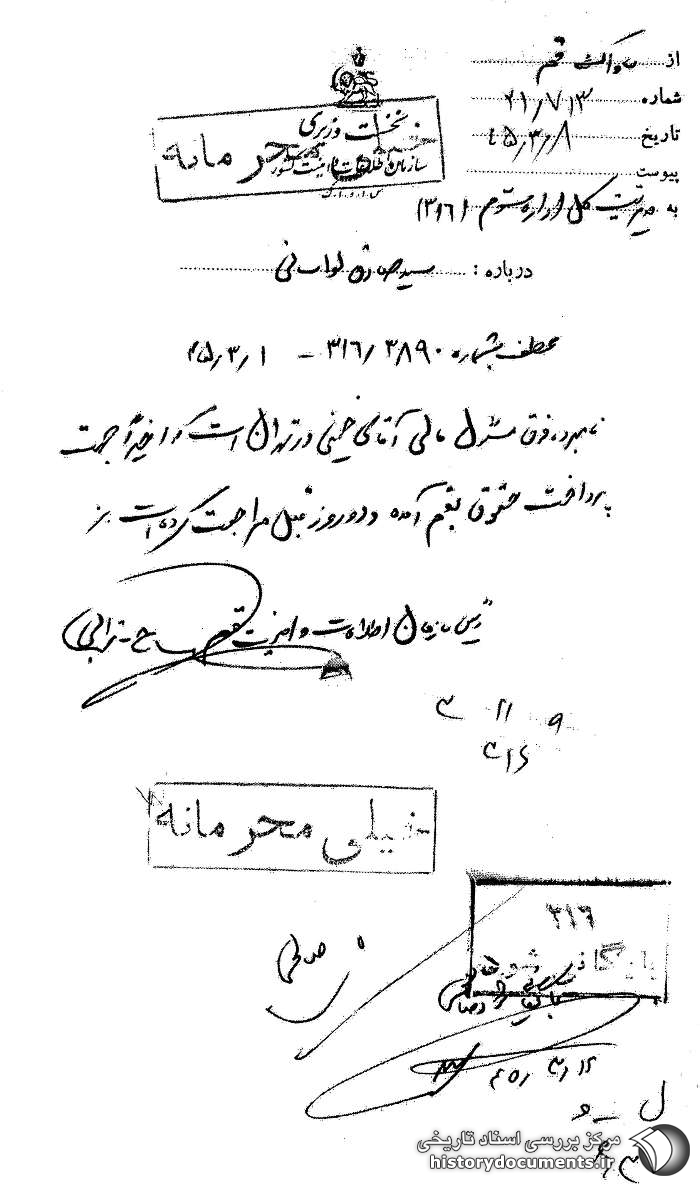 از ساواک قم
شماره ۲۱/۷۱۳
تاریخ ۴۵/۳/۸
پیوست
به مدیریت کل اداره سوم (۳۱۶)
نخست وزیری
سازمان اطلاعات و امنیت کشور
س.ا.و.ا.ک
خیلی محرمانه
درباره : سید صادق لواسانی
عطف بشماره ۳۱۶/۳۸۹۰ – ۴۵/۳/۱
نامبرده فوق مسئول مالی آقای خمینی در تهران است که اخیراً جهت
پرداخت حقوق بقم آمده و دو روز قبل مراجعت کرده است
رئیس سازمان اطلاعات و امنیت قم
خیلی محرمانه
۳۱۶
بایگانی شود
صالحی
۴۵/۳/۱۲
مرکز بررسی اسناد تاریخی
historydocuments.ir